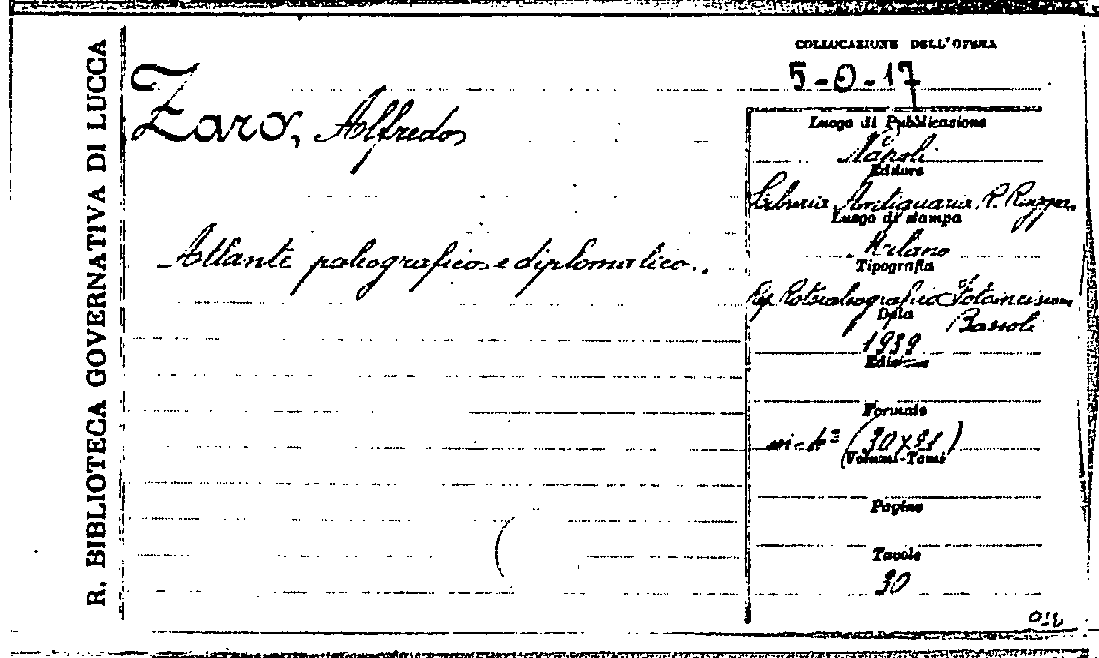 R. BIBLIOTECA GOVERNATIVA DI LUCCA
COLLOCAZIONE DELL'OPERA
5-0-17
Zaro, Alfredo
Atlante paleografico e diplomatico.
Luogo di Pubblicazione
Napoli
Editore
Libreria Antiquaria P.
Luogo di stampa
Milano
Tipografia
Rotocalcografica
Data
Bassoli
1939
Edizione
Formato
in-4º (30x21)
Volumi-Tomi
Pagine
Tavole
30